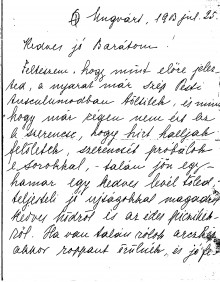 Ungvári, 1913 júl. 25.
Kedves jó Barátom!
Felteszem, hogy mint előre jelez-
ted, a nyarat már szép Pesti
Tusculumodban töltitek, és mint
hogy már régen nem ért be
a szerencse, hogy hírt halljak
felőletek, szerencsét próbálok
e sorokkal, - talán jön egy-
hamar egy kedves levél tőled
teljesteli jó ujságokkal magadról
kedves húdról és az édes picinkéd-
ről. Ha van talán rólok arczkép
akkor roppant örülnék, és jó